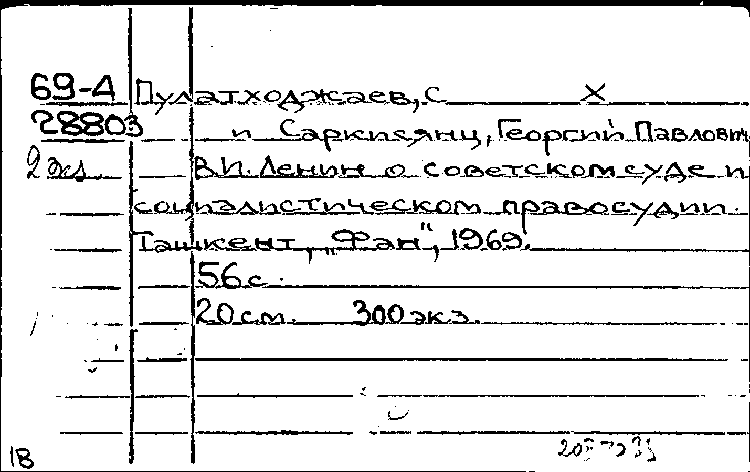 69-4 Пулатходжаев, С X
28803 и Саркисянц, Георгий Павлович
2 экз. В.И. Ленин о советском суде и
социалистическом правосудии.
Ташкент, „Фан“, 1969.
56 с.
20 см. 300 экз.
18